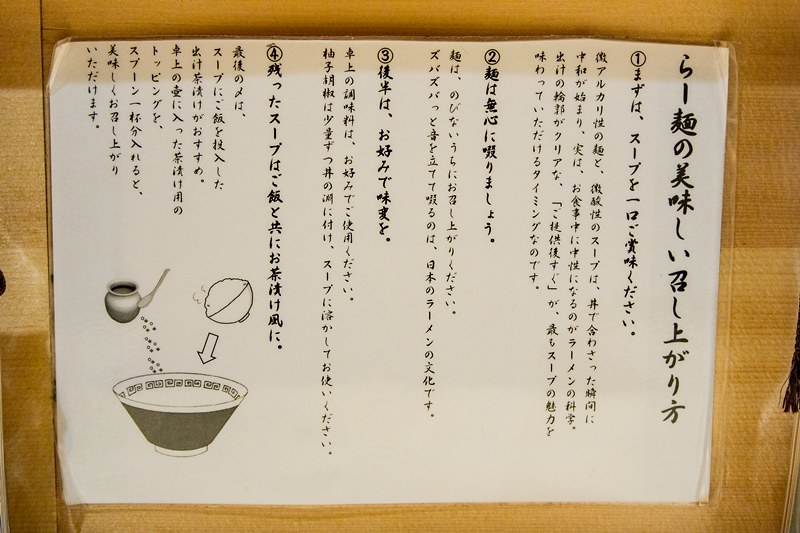 らー麺の美味しい召し上がり方
①まずは、スープを一口ご賞味ください。
微アルカリ性の麺と、微酸性のスープは、丼で合わさった瞬間に
中和が始まり、実は、お食事中に中性になるのがラーメンの科学。
出汁の輪郭がクリアな、「ご提供後すぐ」が、最もスープの魅力を
味わっていただけるタイミングなのです。
②麺は無心に啜りましょう。
麺は、のびないうちにお召し上がりください。
ズバズバっと音を立てて啜るのは、日本のラーメンの文化です。
③後半は、お好みで味変を。
卓上の調味料は、お好みでご使用ください。
柚子胡椒は少量ずつ丼の淵に付け、スープに溶かしてお使いください。
④残ったスープはご飯と共にお茶漬け風に。
最後の〆は、
スープにご飯を投入した
出汁茶漬けがおすすめ。
卓上の壺に入った茶漬け用の
トッピングを、
スプーン一杯分入れると、
美味しくお召し上がり
いただけます。